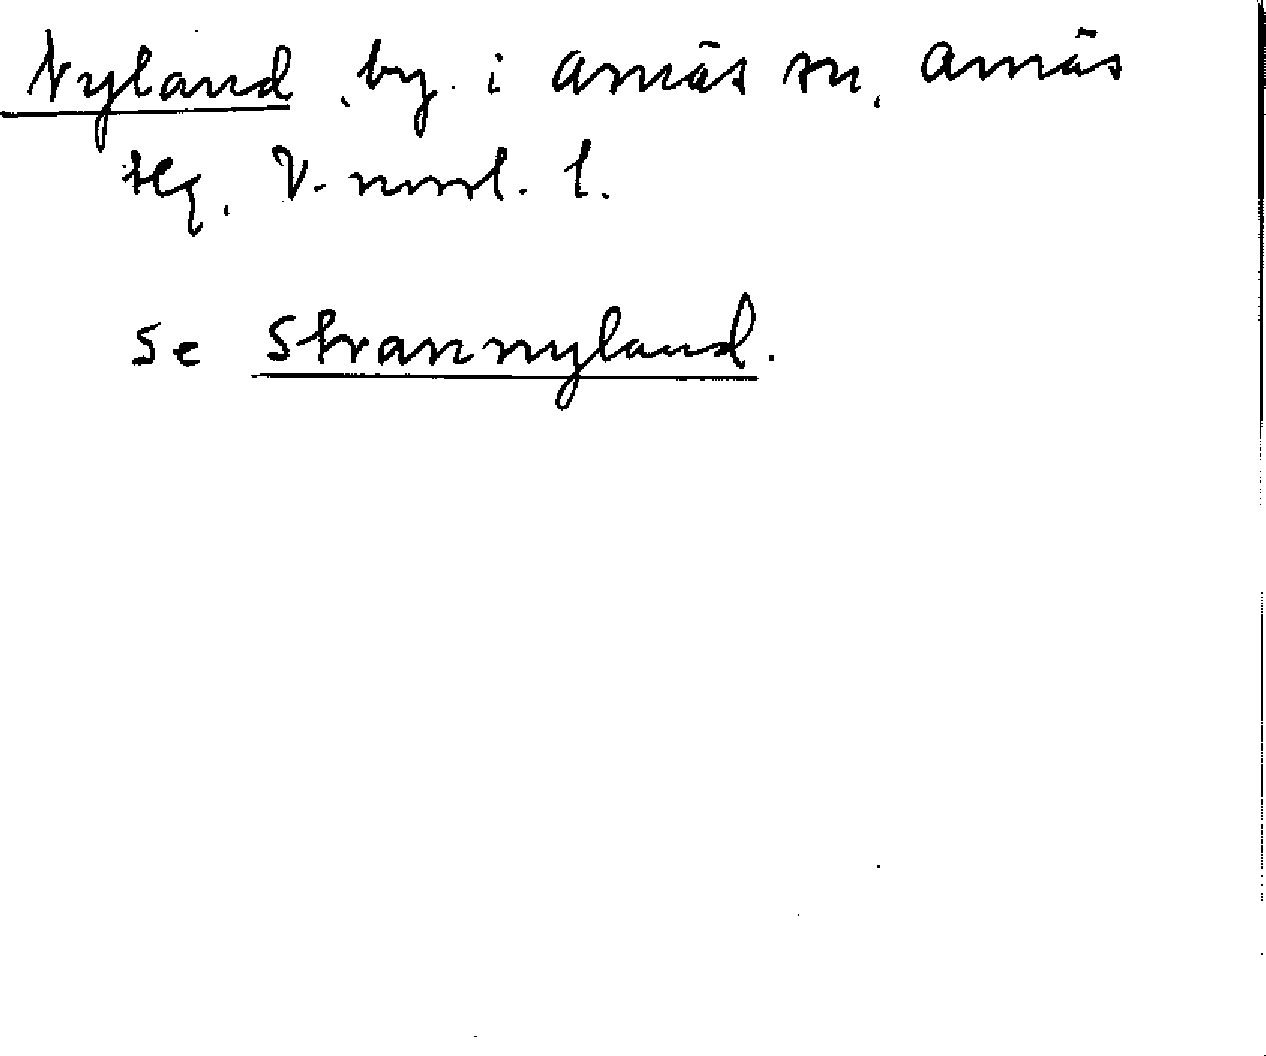 Nyland, by i Arnäs sn, Arnäs
tlg, V-norrl. l.
se Strannyland.